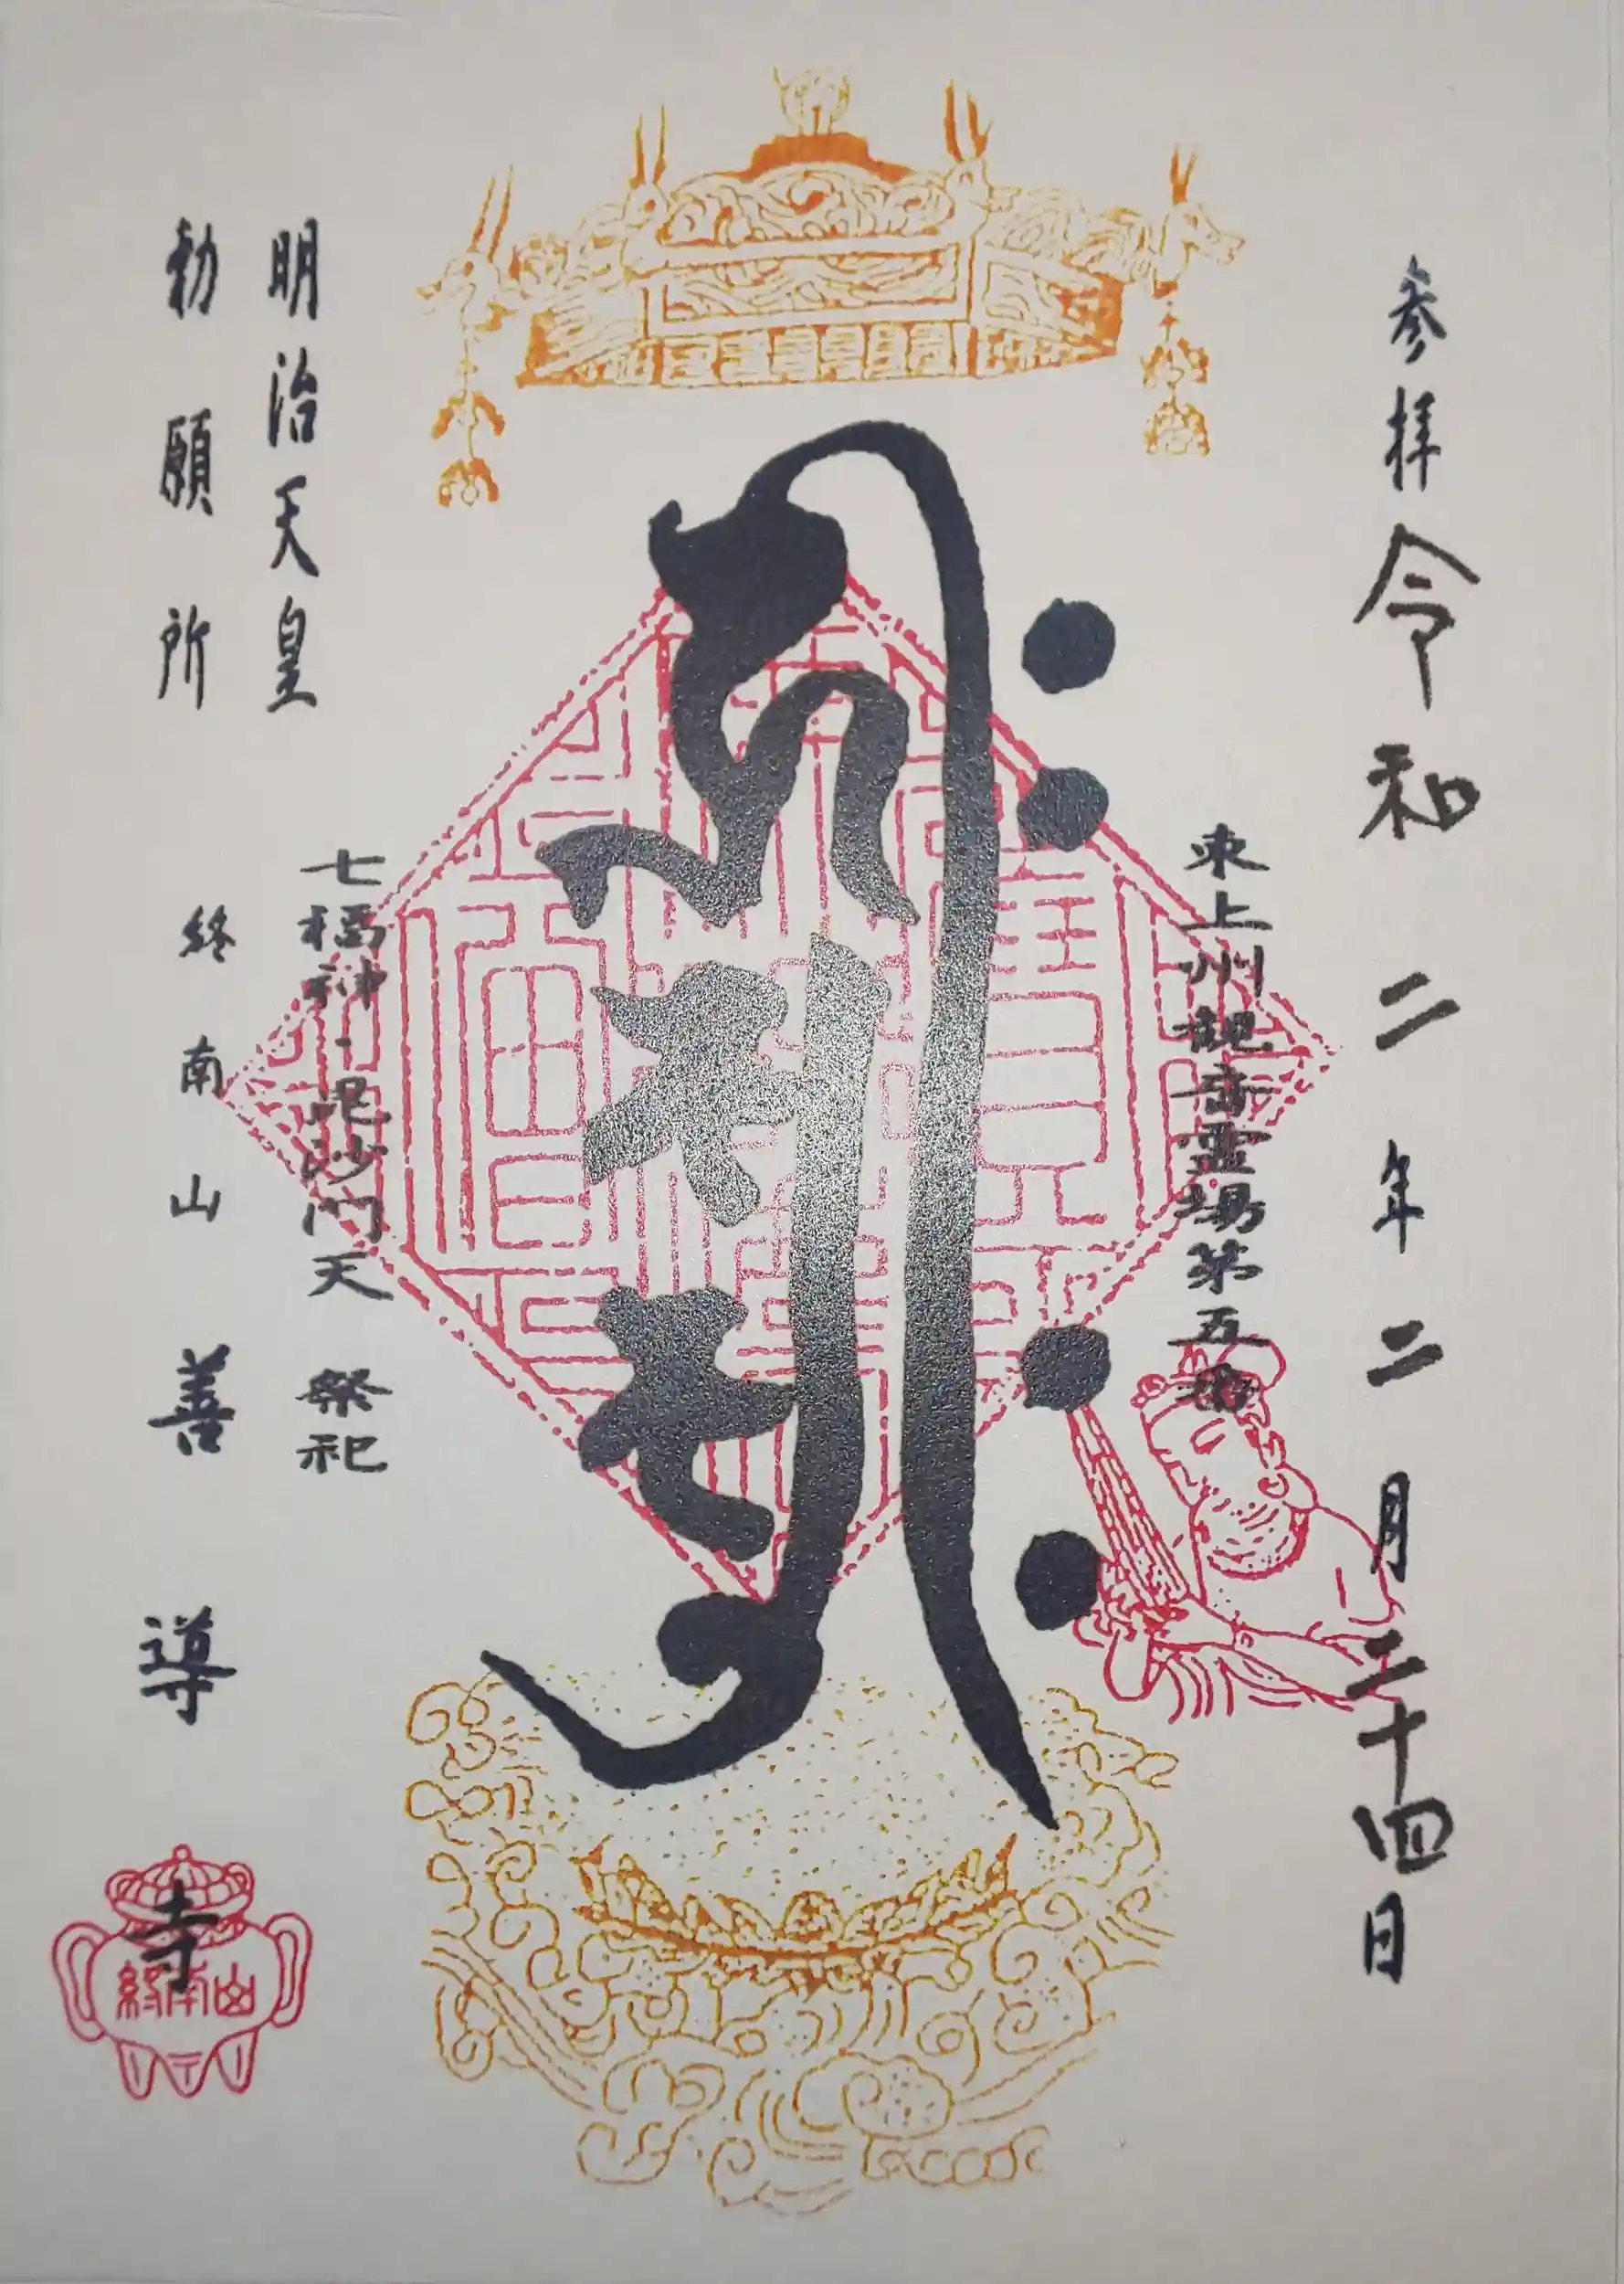 参拝 令和二年二月二十四日
東上州観音霊場第五番
明治天皇
勅願所
七福神・毘沙門天 祭祀
終南山 善導寺
終南山